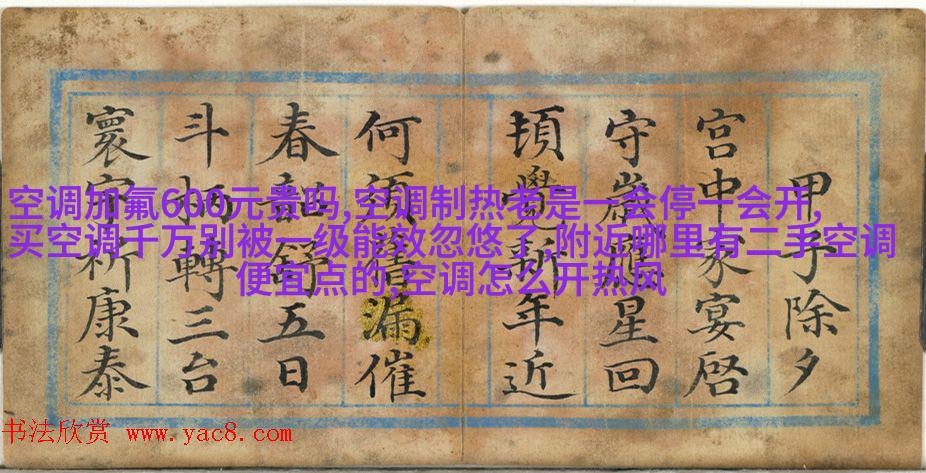 甲子除夕
宫中家宴啓
守歲星回
頃覺新年近
何須漏催
春舒五日
斗柄轉三台
寰宇祈康泰
空调加氟600元贵吗,空调制热老是一会停一会开,
买空调千万别被一级能效忽悠了,附近哪里有二手空调
便宜点的,空调怎么开热风
书法欣赏 www.yac8.com